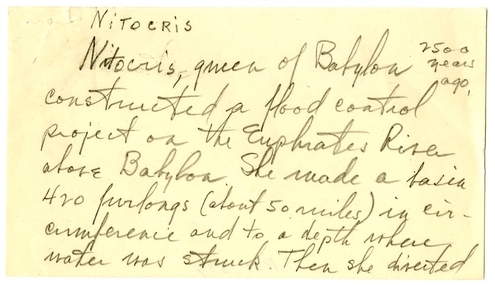 NITOCRIS
Nitocris, queen of Babylon 2500
years
ago,
constructed a flood control
project on the Euphrates River
above Babylon. She made a basin
420 furlongs (about 50 miles) in cir-
cumference and to a depth where
water was struck. Then she diverted